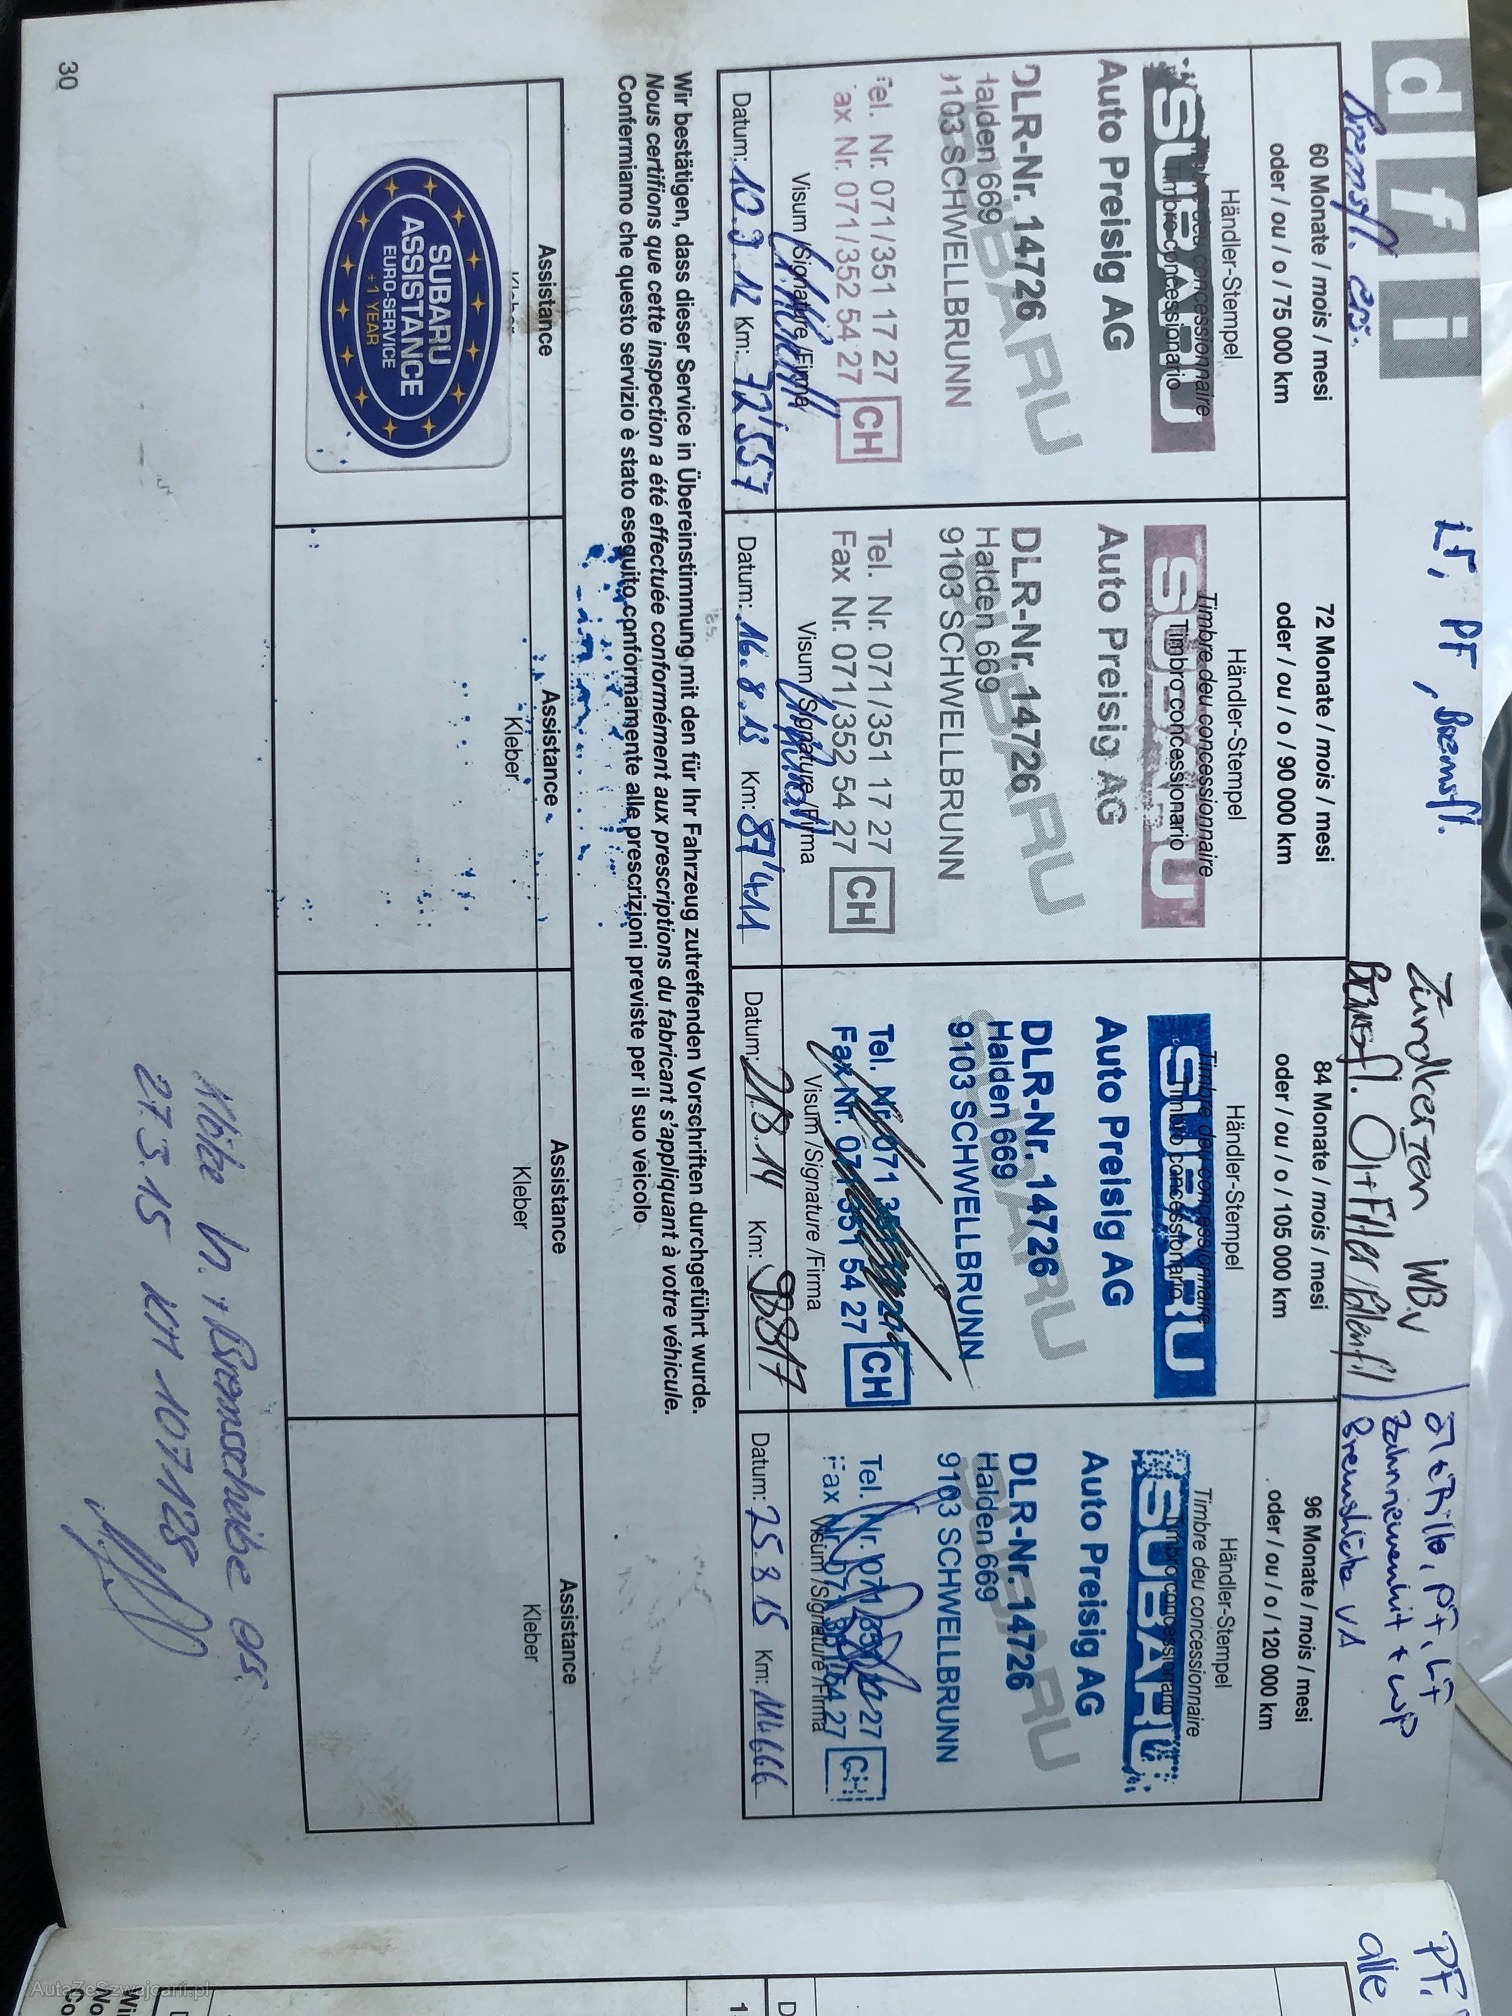 d f i
Bremsfl. ers.
LF, PF, Bremsfl.
Zündkerzen WB.v
Bremsfl. Öl+Filter Pollenfil
Öl+Filter, PF, LF
Zahnriemenkit + WP
Bremsklötze VA
60 Monate / mois / mesi
oder / ou / o / 75 000 km
Händler-Stempel
Timbre deu concessionnaire
Timbro concessionario
SUBARU
Auto Preisig AG
SUBARU
DLR-Nr. 14726
Halden 669
9103 SCHWELLBRUNN
Tel. Nr. 071/351 17 27
Fax Nr. 071/352 54 27 CH
Visum /Signature /Firma
Datum: 10.9.12 Km: 72'557
72 Monate / mois / mesi
oder / ou / o / 90 000 km
Händler-Stempel
Timbre deu concessionnaire
Timbro concessionario
SUBARU
Auto Preisig AG
SUBARU
DLR-Nr. 14726
Halden 669
9103 SCHWELLBRUNN
Tel. Nr. 071/351 17 27
Fax Nr. 071/352 54 27 CH
Visum /Signature /Firma
Datum: 16.8.13 Km: 87'411
84 Monate / mois / mesi
oder / ou / o / 105 000 km
Händler-Stempel
Timbre deu concessionnaire
Timbro concessionario
SUBARU
Auto Preisig AG
SUBARU
DLR-Nr. 14726
Halden 669
9103 SCHWELLBRUNN
Tel. Nr. 071 351 27
Fax Nr. 071 351 54 27 CH
Visum /Signature /Firma
Datum: 21.8.14 Km: 98817
96 Monate / mois / mesi
oder / ou / o / 120 000 km
Händler-Stempel
Timbre deu concessionnaire
Timbro concessionario
SUBARU
Auto Preisig AG
SUBARU
DLR-Nr. 14726
Halden 669
9103 SCHWELLBRUNN
Tel. Nr. 071 27
Fax Nr. 071 351 54 27 CH
Visum /Signature /Firma
Datum: 25 8 15 Km: 111666
Wir bestätigen, dass dieser Service in Übereinstimmung mit den für Ihr Fahrzeug zutreffenden Vorschriften durchgeführt wurde.
Nous certifions que cette inspection a été effectuée conformément aux prescriptions du fabricant s'appliquant à votre véhicule.
Confermiamo che questo servizio è stato eseguito conformamente alle prescrizioni previste per il suo veicolo
Assistance
Kleber
SUBARU
ASSISTANCE
EURO-SERVICE
+1 YEAR
Assistance
Kleber
Assistance
Kleber
Assistance
Kleber
Klötze + Bremsscheibe ers.
27.3.15 KM 107128
30
PF,
alle
AutaZeSzwajcarii.pl